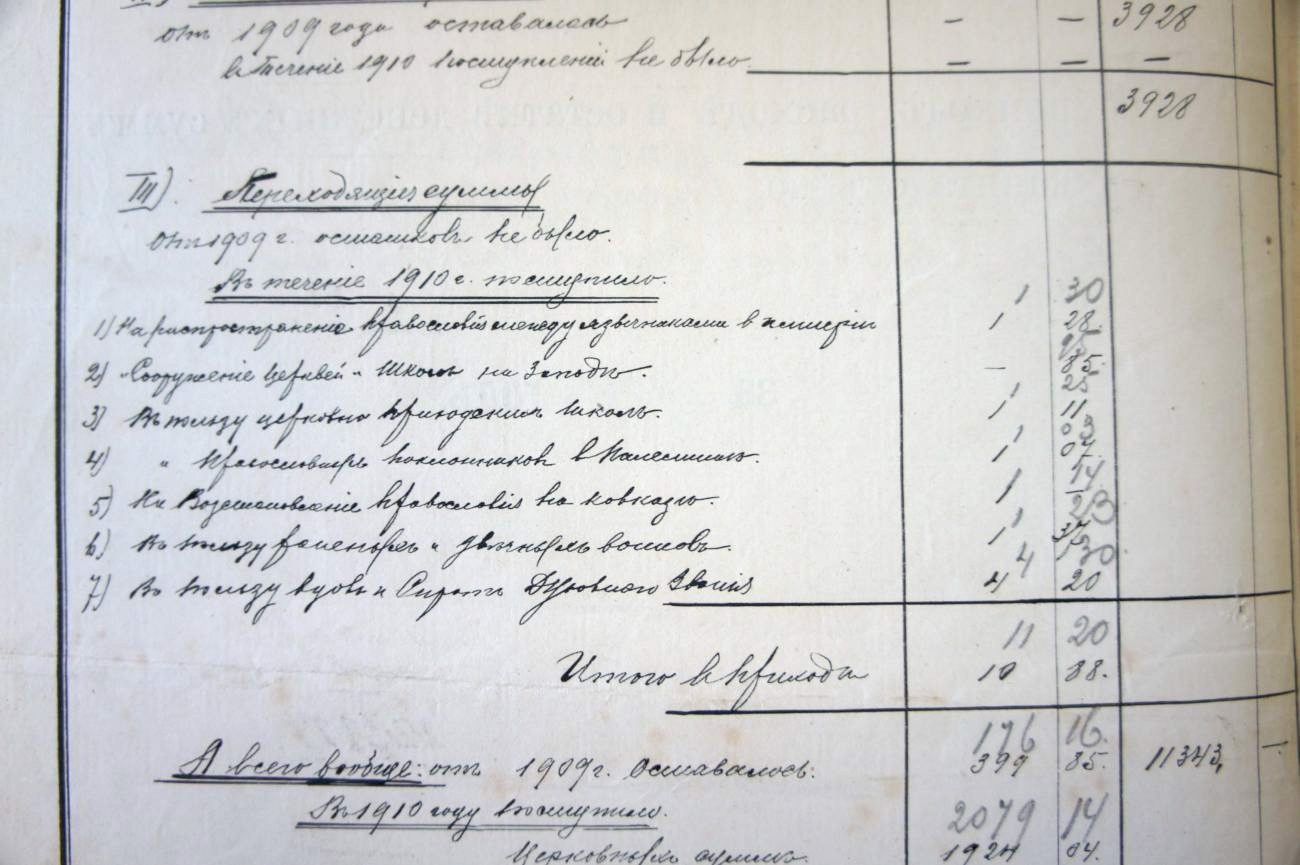 отъ 1909 года оставалось — — 3928
въ теченіе 1910 поступленій не было — — —
3928
III). Переходящія суммы
отъ 1909 г. остатковъ не было.
Въ теченіе 1910 г. поступило.
1 30
1) На распространеніе православія между язычниками в имперіи 1 28
2) " Сооруженіе Церквей и Школъ на Западѣ. — 85.
1 25
3) Въ пользу церковно приходскихъ школъ. 1 11
1
4) " Православныхъ поклонниковъ в Палестинѣ. 1 07
1 14
5) На Возстановленіе православія на Кавказѣ. 1
1 23
6) Въ пользу раненыхъ и увѣчныхъ воиновъ. 1 37
4 30
7) Въ пользу вдовъ и Сиротъ Духовнаго Званія 4 20
11 20
Итого в приходѣ 10 88.
176 16.
А всего вообще: отъ 1909 г. оставалось: 399 85. 11343, —
Въ 1910 году поступило. 2079 14
Церковныхъ суммъ. 1924 04.